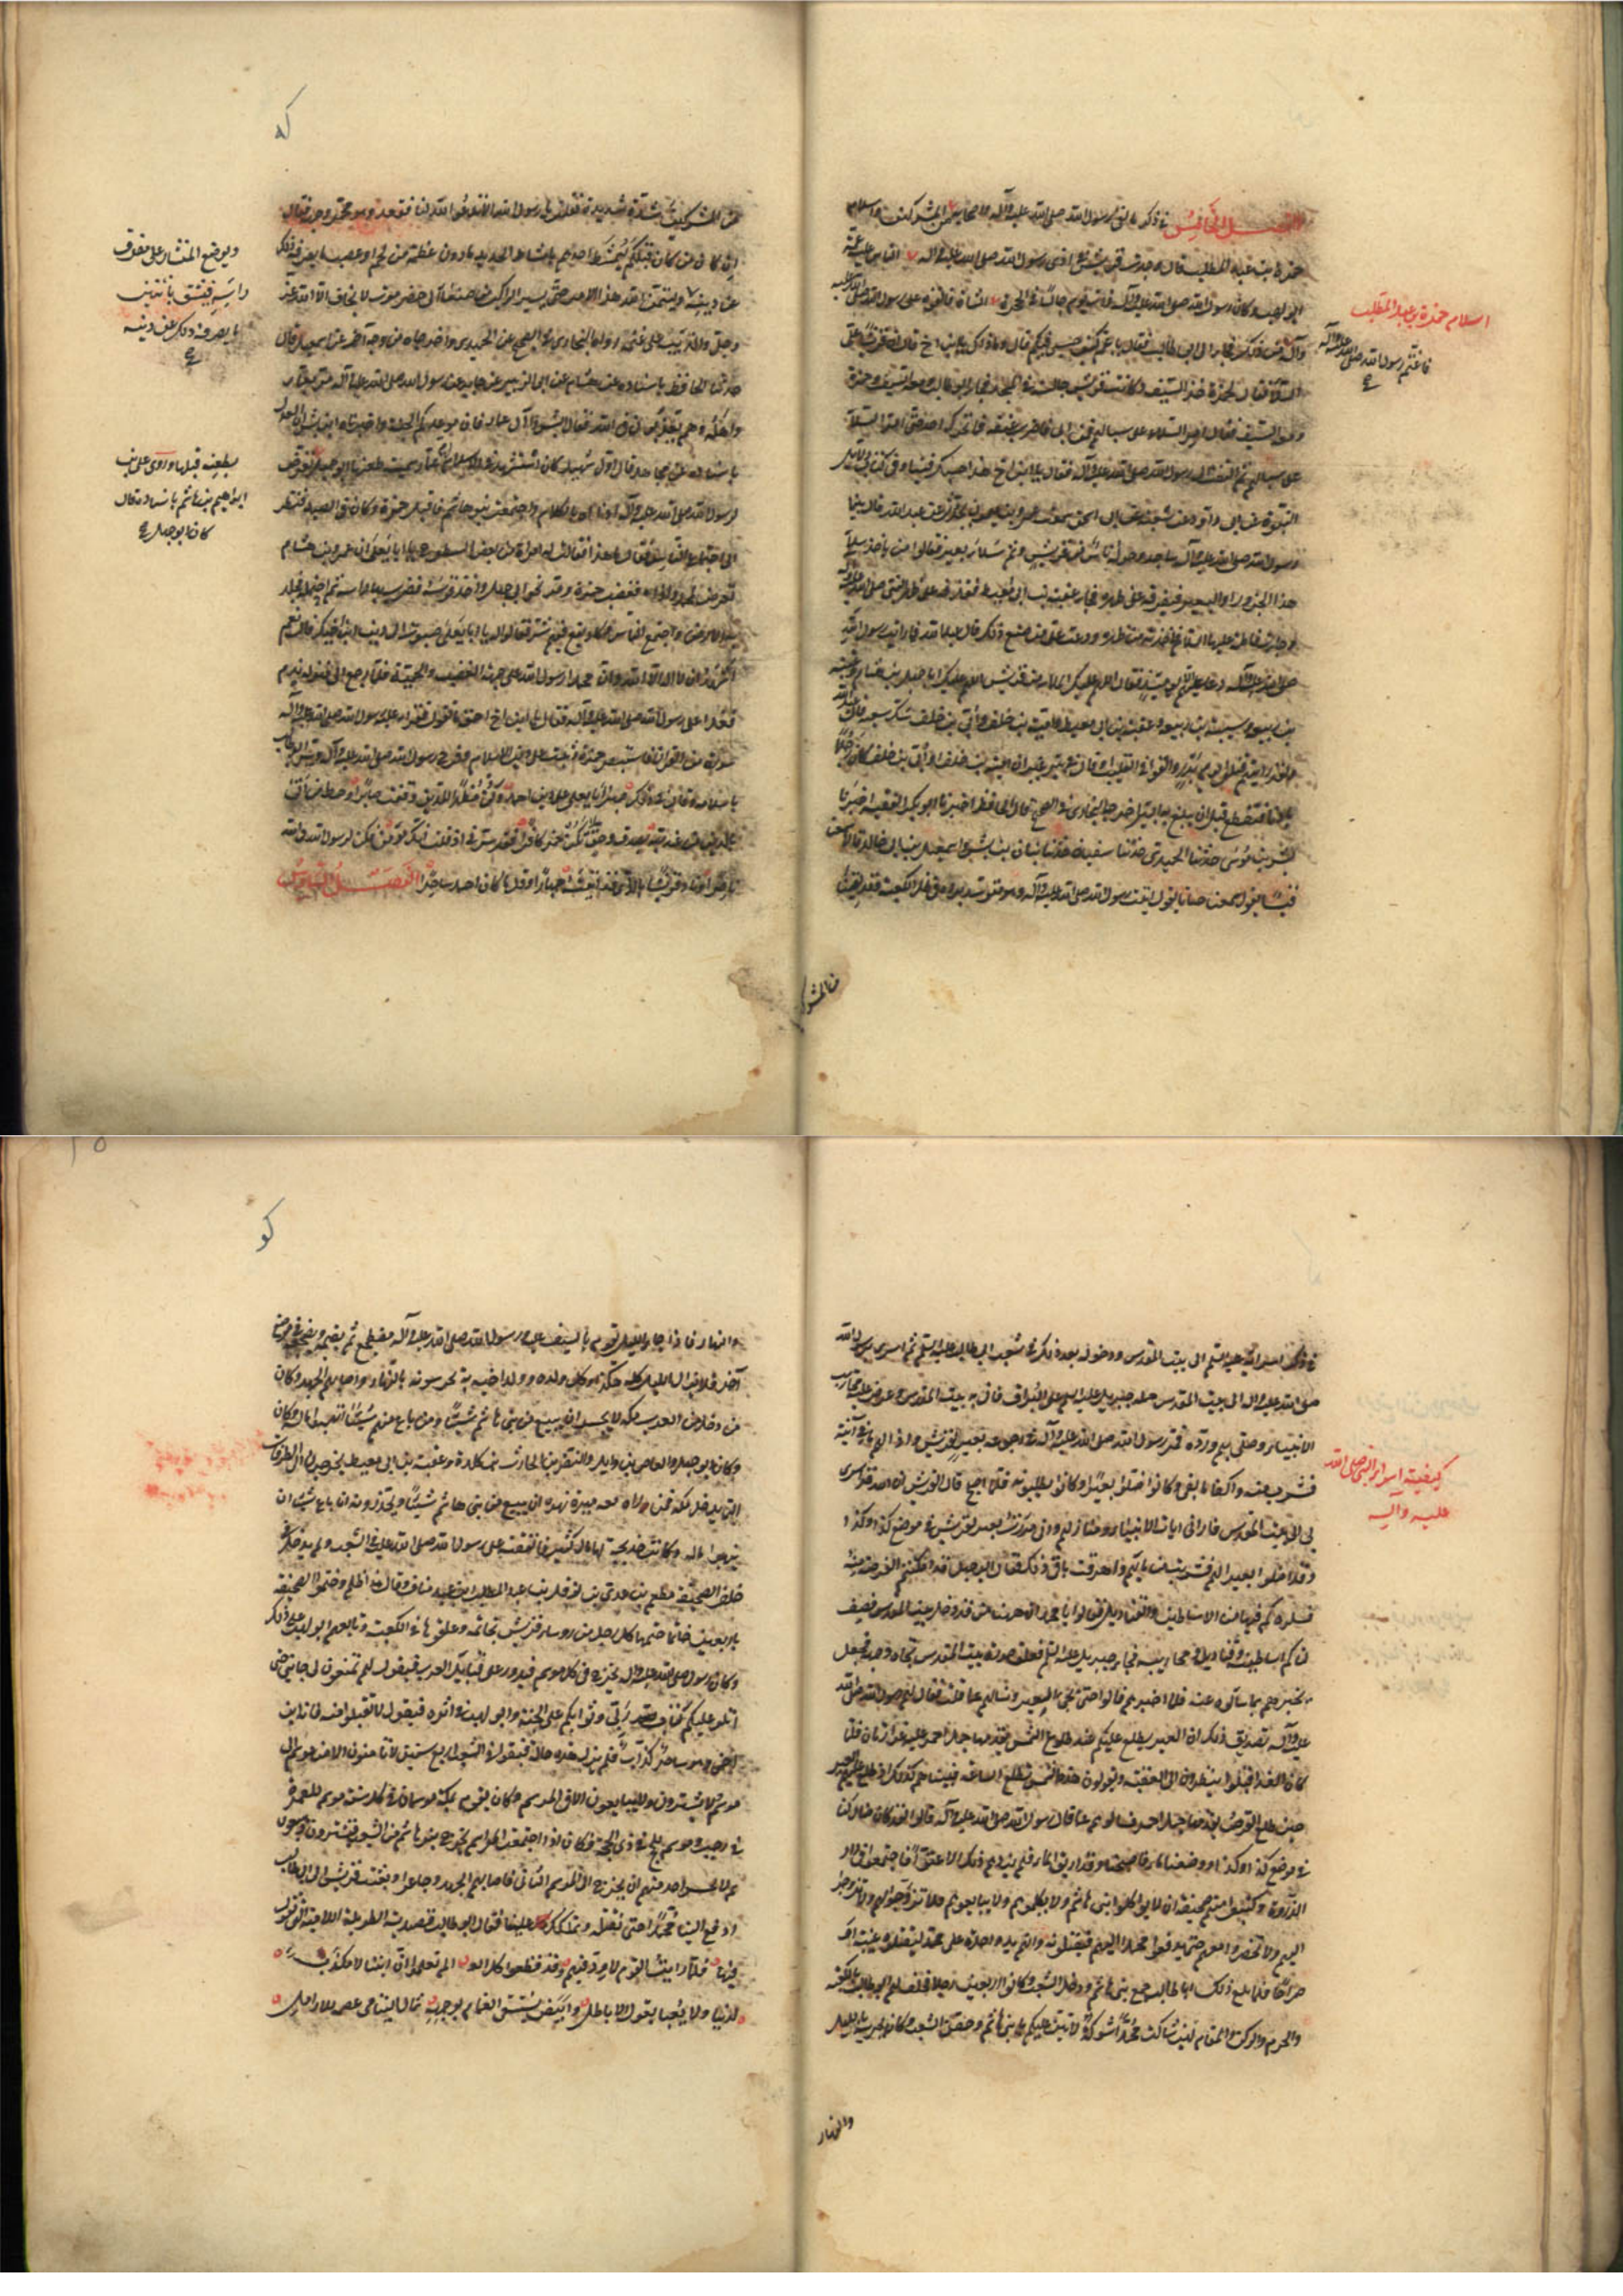 الفصل الخامس في ذكر ما لقي رسول الله صلى الله عليه وآله من المشركين واسلام
حمزة بن عبد المطلب قال وجدت قريش في اذى رسول الله صلى الله عليه وآله
ابو لهب وكان رسول الله صلى الله عليه وآله ذات يوم جالسا في الحجر فالقوه على رسول الله صلى الله عليه
وآله من ذلك فجاء الى ابي طالب فقال يا عم كيف حسبي فيكم قال وما ذاك يا ابن اخ قال ان قريشا القوا علي
السلا فقال لحمزة خذ السيف وكانت قريش جالسة في المسجد فجاء ابو طالب ومعه السيف وحمزة
ومعه السيف فقال امر السلا على سبالهم فمن ابى فاضرب عنقه فما تحرك احد حتى امر السلا
على سبالهم ثم التفت الى رسول الله صلى الله عليه وآله فقال يا ابن اخ هذا حسبك فينا وفي كتاب دلايل
النبوة عن ابي داود عن شعبة عن ابي اسحق سمعت عمرو بن ميمون يحدث عن عبد الله قال بينما
رسول الله صلى الله عليه وآله ساجد وحوله ناس من قريش وثم سلا بعير فقالوا من ياخذ سلا
هذا الجزور او البعير فيفرقه على ظهره فجاء عقبة بن ابي معيط فقذفه على ظهر النبي صلى الله عليه وآله
وجاءت فاطمة عليها السلام فاخذته من ظهره ودعت على من صنع ذلك قال عبد الله فما رايت رسول الله
صلى الله عليه وآله دعا عليهم الا يومئذ فقال اللهم عليك الملا من قريش اللهم عليك ابا جهل بن هشام وعتبة
بن ربيعة وشيبة بن ربيعة وعقبة بن ابي معيط وامية بن خلف او ابي بن خلف شك شعبة قال عبد الله
ولقد رايتهم قتلوا يوم بدر والقوا في القليب او قال في بير غير ان امية بن خلف او ابي بن خلف كان رجلا
بادنا فتقطع قبل ان يبلغ به البير اخرجه البخاري في الصحيح قال الحافظ اخبرنا ابو بكر الفقيه اخبرنا
بشر بن موسى حدثنا الحميدي حدثنا سفيان حدثنا بيان بن بشر واسمعيل بن ابي خالد قالا سمعنا
قيسا يقول سمعنا خبابا يقول اتيت رسول الله صلى الله عليه وآله وهو متوسد برده في ظل الكعبة وقد لقينا
من المشر
اسلام حمزة بن عبد المطلب
فاغتم رسول الله صلى الله عليه وآله
كه
من المشركين شدة شديدة فقلت يا رسول الله الا تدعو الله لنا فقعد وهو محمر وجهه فقال
ان كان من كان قبلكم ليمشط احدهم بامشاط الحديد ما دون عظمه من لحم او عصب ما يصرفه ذلك
عن دينه وليتمن الله هذا الامر حتى يسير الراكب من صنعاء الى حضرموت لا يخاف الا الله عز
وجل والذئب على غنمه رواه البخاري في الصحيح عن الحميدي واخرجاه من وجه آخر عن اسمعيل قال
حدثنا الحافظ باسناده عن هشام عن ابي الزبير عن جابر عن رسول الله صلى الله عليه وآله مر بعمار
واهله وهم يعذبون في الله فقال ابشروا آل عمار فان موعدكم الجنة واخبرنا ابن بشران العدل
باسناده عن مجاهد قال اول شهيد كان استشهد في الاسلام ام عمار سمية طعنها ابو جهل تعرض
لرسول الله صلى الله عليه وآله واذاه بالكلام واجتمعت بنو هاشم فاقبل حمزة وكان في الصيد فنظر
الى اجتماع الناس فقال ما هذا فقالت له امراة من بعض السطوح يا ابا يعلى ان عمرو بن هشام
تعرض لمحمد واذاه فغضب حمزة ومر نحو ابي جهل واخذ قوسه فضرب بها راسه ثم احتمله فجلد
به الارض واجتمع الناس وكاد يقع فيهم شر فقالوا له يا ابا يعلى صبوت الى دين ابن اخيك قال نعم
اشهد ان لا اله الا الله وان محمدا رسول الله على جهة الغضب والحمية فلما رجع الى منزله ندم
فغدا على رسول الله صلى الله عليه وآله فقال يا ابن اخ احقا ما تقول فقرأ عليه رسول الله صلى الله عليه وآله
سورة من القرآن فاستبصر حمزة فثبت على دين الاسلام وفرح رسول الله صلى الله عليه وآله وسر ابو طالب
باسلامه وقال في ذلك صبرا ابا يعلى على دين احمد وكن مظهرا للدين وفقت صابرا وحط من اتى
بالدين من عند ربه بصدق وحق لا تكن حمز كافرا فقد سرني اذ قلت انك مؤمن فكن لرسول الله في الله
ناصرا وناد قريشا بالذي قد اتيته جهارا وقل ما كان احمد ساحرا الفصل السادس
ويوضع المنشار على مفرق
راسه فيشق باثنين
ما يصرفه ذلك عن دينه
بطعنه قبلها وروى علي بن
ابراهيم بن هاشم باسناده قال
كان ابو جهل
في ذكر اسرائه عليه السلم الى بيت المقدس ودخوله بعد ذلك في شعب ابي طالب عليه السلم ثم اسري برسول الله
صلى الله عليه وآله الى بيت المقدس حمله جبريل عليه السلم على البراق فاتى به بيت المقدس وعرض عليه محاريب
الانبياء وصلى بهم ورده فمر رسول الله صلى الله عليه وآله في رجوعه بعير لقريش واذا لهم ماء في آنية
فشرب منه واكفا ما بقي وكانوا اضلوا بعيرا وكانوا يطلبونه فلما اصبح قال لقريش ان الله قد اسرى
بي الى بيت المقدس فاراني ايات الانبياء ومنازلهم واني مررت بعير لقريش في موضع كذا وكذا
وقد اضلوا بعيرا لهم فشربت من مائهم واهرقت باقي ذلك فقال ابو جهل قد امكنتم الفرصة منه
فسلوه كم فيها من الاساطين والقناديل فقالوا يا محمد ان ههنا من قد دخل بيت المقدس فصف
لنا كم اساطينه وقناديله ومحاريبه فجاء جبريل عليه السلم فعلق صورة بيت المقدس تجاه وجهه فجعل
يخبرهم بما سألوه عنه فلما اخبرهم قالوا حتى تجيء العير ونسالهم عما قلت فقال لهم رسول الله صلى الله
عليه وآله تصديق ذلك ان العير يطلع عليكم عند طلوع الشمس يقدمها جمل احمر عليه غرارتان فلما
كان الغد اقبلوا ينظرون الى العقبة ويقولون هذه الشمس تطلع الساعة فبينا هم كذلك اذ طلع عليهم العير
حين طلع القرص يقدمها جمل احمر فسالوهم عما قال رسول الله صلى الله عليه وآله قالوا لقد كان هذا وكذا
في موضع كذا وكذا ووضعنا ماء فاصبحنا وقد اهريق الماء فلم يزدهم ذلك الا عتوا فاجتمعوا في دار
الندوة وكتبوا بينهم صحيفة ان لا يواكلوا بني هاشم ولا يكلموهم ولا يبايعوهم ولا يزوجوهم ولا يتزوجوا
اليهم ولا يحضروا معهم حتى يدفعوا محمدا اليهم فيقتلونه وانهم يد واحدة على محمد ليقتلوه غيلة او
صراحا فلما بلغ ذلك ابا طالب جمع بني هاشم ودخل الشعب وكانوا اربعين رجلا فحلف لهم ابو طالب بالكعبة
والحرم والركن والمقام لئن شاكت محمدا شوكة لاثبن عليكم يا بني هاشم وحصن الشعب وكان يحرسه بالليل
والنهار
كيفية اسراء النبي صلى الله
عليه وآله
كو
والنهار فاذا جاء الليل يقوم بالسيف عليه ورسول الله صلى الله عليه وآله مضطجع ثم يقيمه ويضجعه في موضع
آخر فلا يزال الليل كله هكذا ووكل ولده وولد اخيه به يحرسونه بالنهار واصابهم الجهد وكان
من دخل من العرب مكة لا يجسر ان يبيع من بني هاشم شيئا ومن باع منهم شيئا انتهبوا ماله وكان
وكان ابو جهل والعاص بن وايل والنضر بن الحارث بن كلدة وعقبة بن ابي معيط يخرجون الى الطرقات
التي يدخل مكة فمن راوه معه ميرة نهوه ان يبيع من بني هاشم شيئا ويحذرونه ان باع شيئا ان
ينهبوا ماله وكانت خديجة لها مال كثير فانفقته على رسول الله صلى الله عليه وآله في الشعب ولم يدخل في
حلف الصحيفة مطعم بن عدي بن نوفل بن عبد المطلب بن عبد مناف وقال هذا ظلم وختموا الصحيفة
باربعين خاتما ختمها كل رجل من رؤساء قريش بخاتمه وعلقوها في الكعبة وتابعهم ابو لهب على ذلك
وكان رسول الله صلى الله عليه وآله يخرج في كل موسم فيدور على قبايل العرب فيقول لهم تمنعون لي جانبي حتى
اتلو عليكم كتاب ربي وثوابكم على الله الجنة وابو لهب في اثره فيقول لا تقبلوا منه فانه ابن
اخي وهو ساحر كذاب فلم يزل هذه حاله فبقوا في الشعب اربع سنين لا يامنون الا من موسم الى
موسم ولا يشترون ولا يبايعون الا في الموسم وكان يقوم بمكة موسمان في كل سنة موسم للعمرة
في رجب وموسم للحج في ذي الحجة وكان اذا اجتمعت المواسم يخرج بنو هاشم من الشعب فيشترون ويبيعون
ثم لا يجسر احد منهم ان يخرج الى الموسم الثاني فاصابهم الجهد وجاعوا وبعثت قريش الى ابي طالب
ادفع الينا محمدا حتى نقتله ونملكك علينا فقال ابو طالب قصيدته الطويلة اللامية التي يقول
فيها فلما رايت القوم لا ود فيهم وقد قطعوا كل العرى الم تعلموا ان ابننا لا مكذب
لدينا ولا يعبا بقول الاباطل وابيض يستسقى الغمام بوجهه ثمال اليتامى عصمة للارامل